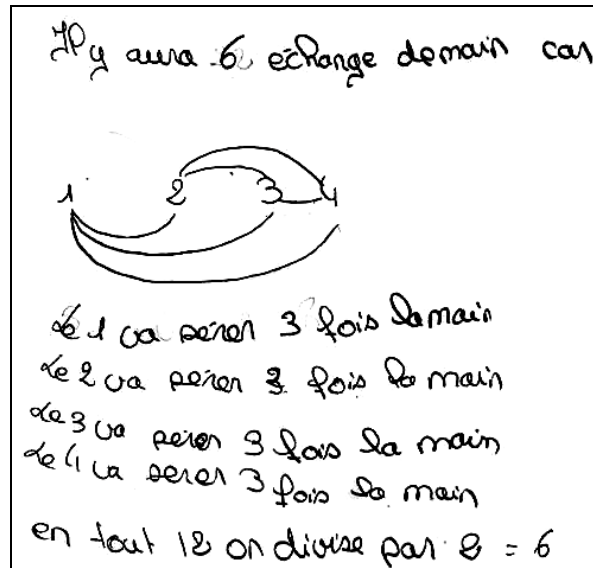 Il y aura 6 echange demain car
1 2 3 4
Le 1 va serer 3 fois la main
Le 2 va serer 3 fois la main
Le 3 va serer 3 fois la main
Le 4 va serer 3 fois la main
en tout 12 on divise par 2 = 6